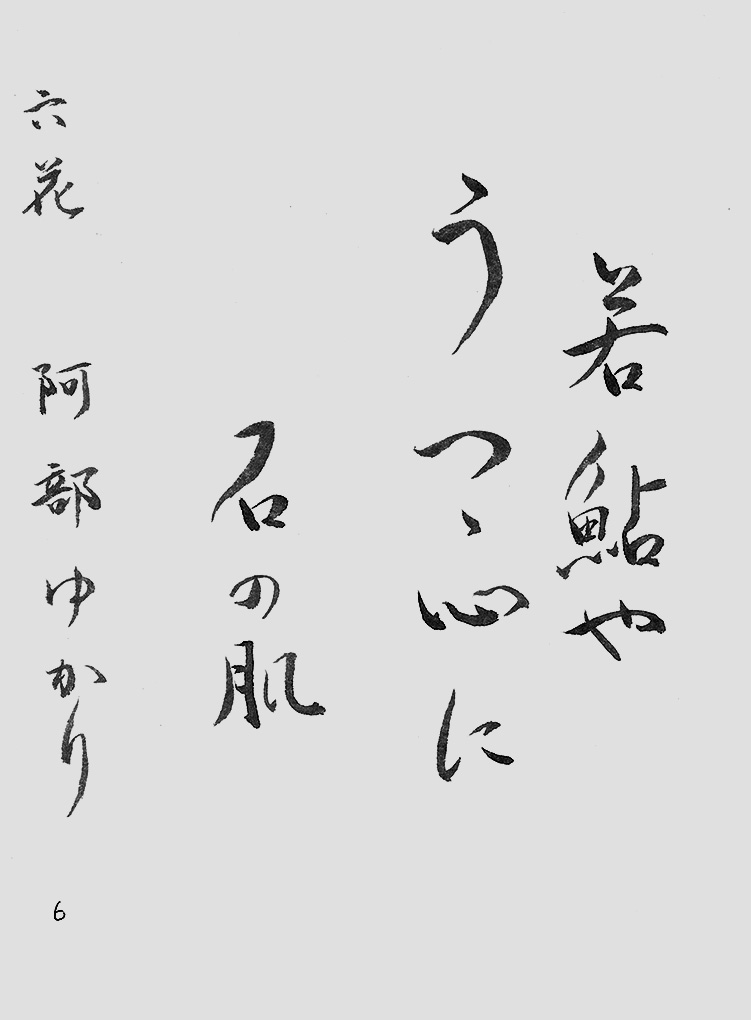 若鮎や
うつゝ心に
石の肌
六花 阿部ゆかり
6